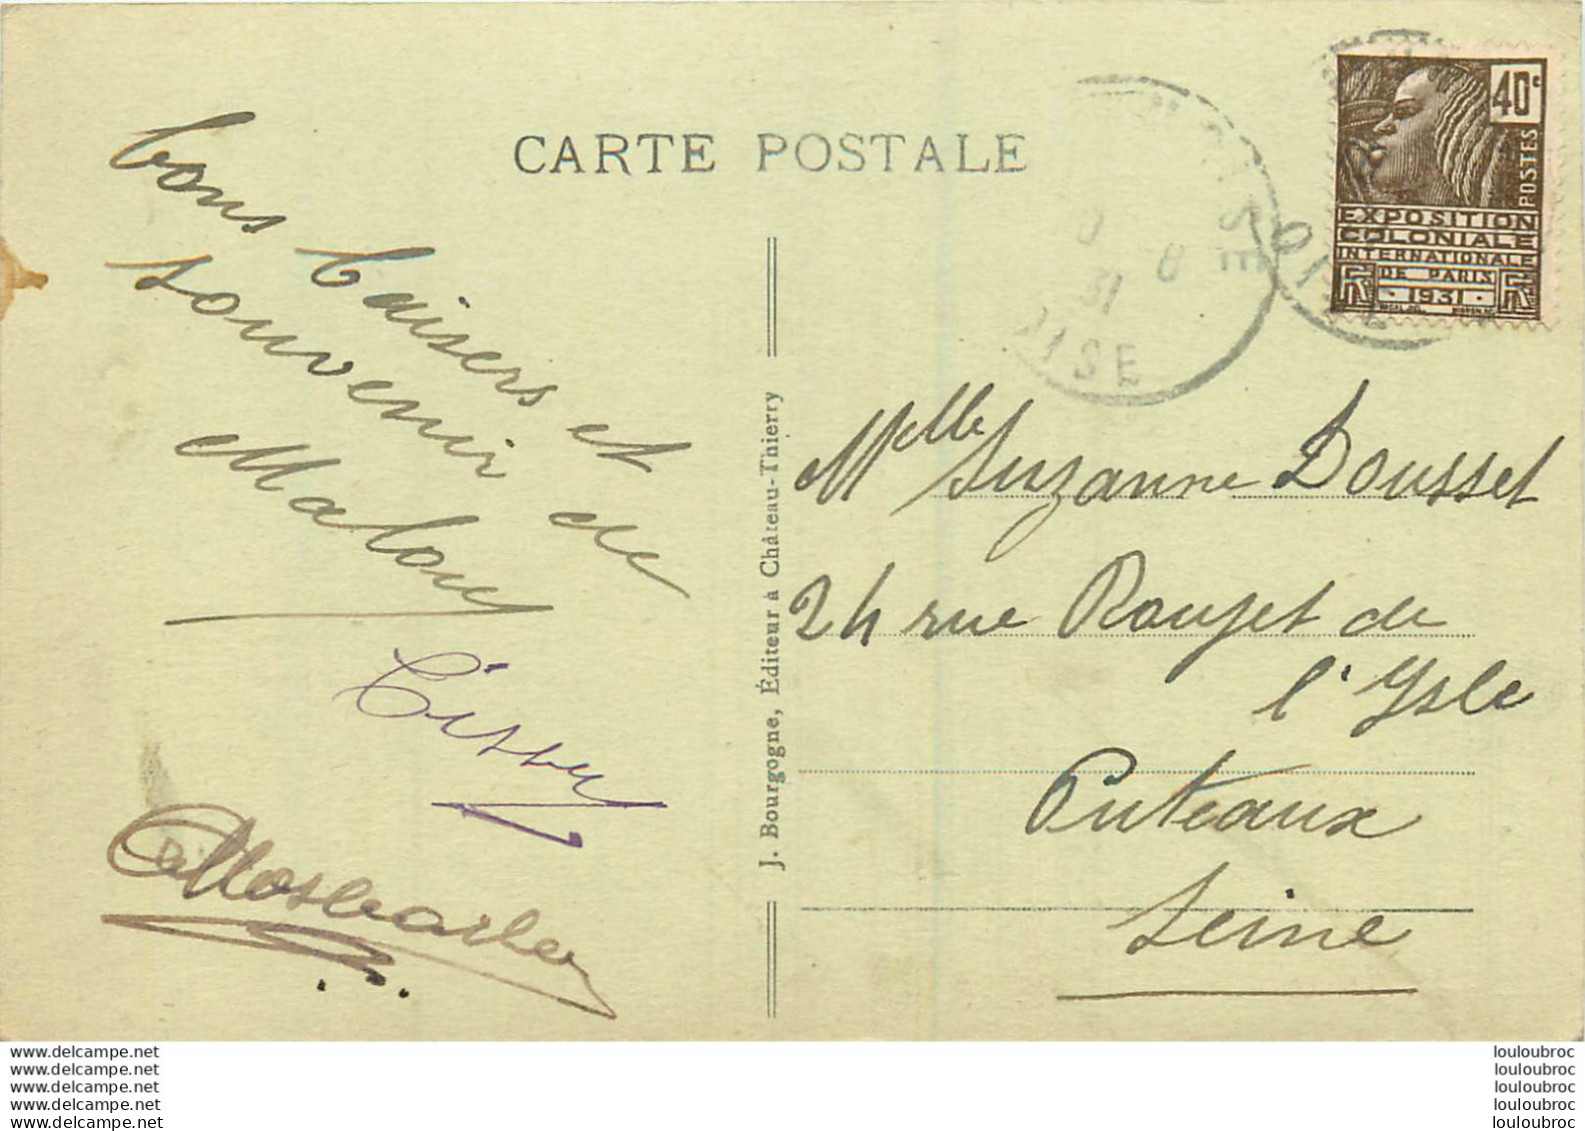 CARTE POSTALE
bons baisers et
souvenir de
Malou
Cissy
J. Bourgogne, Éditeur à Château-Thierry
40c
POSTES
EXPOSITION
COLONIALE
INTERNATIONALE
DE PARIS
1931
31
AISE
OISE
Melle Suzanne Dousset
24 rue Rouget de
l'Ysle
Puteaux
Seine
www.delcampe.net
www.delcampe.net
www.delcampe.net
www.delcampe.net
www.delcampe.net
louloubroc
louloubroc
louloubroc
louloubroc
louloubroc